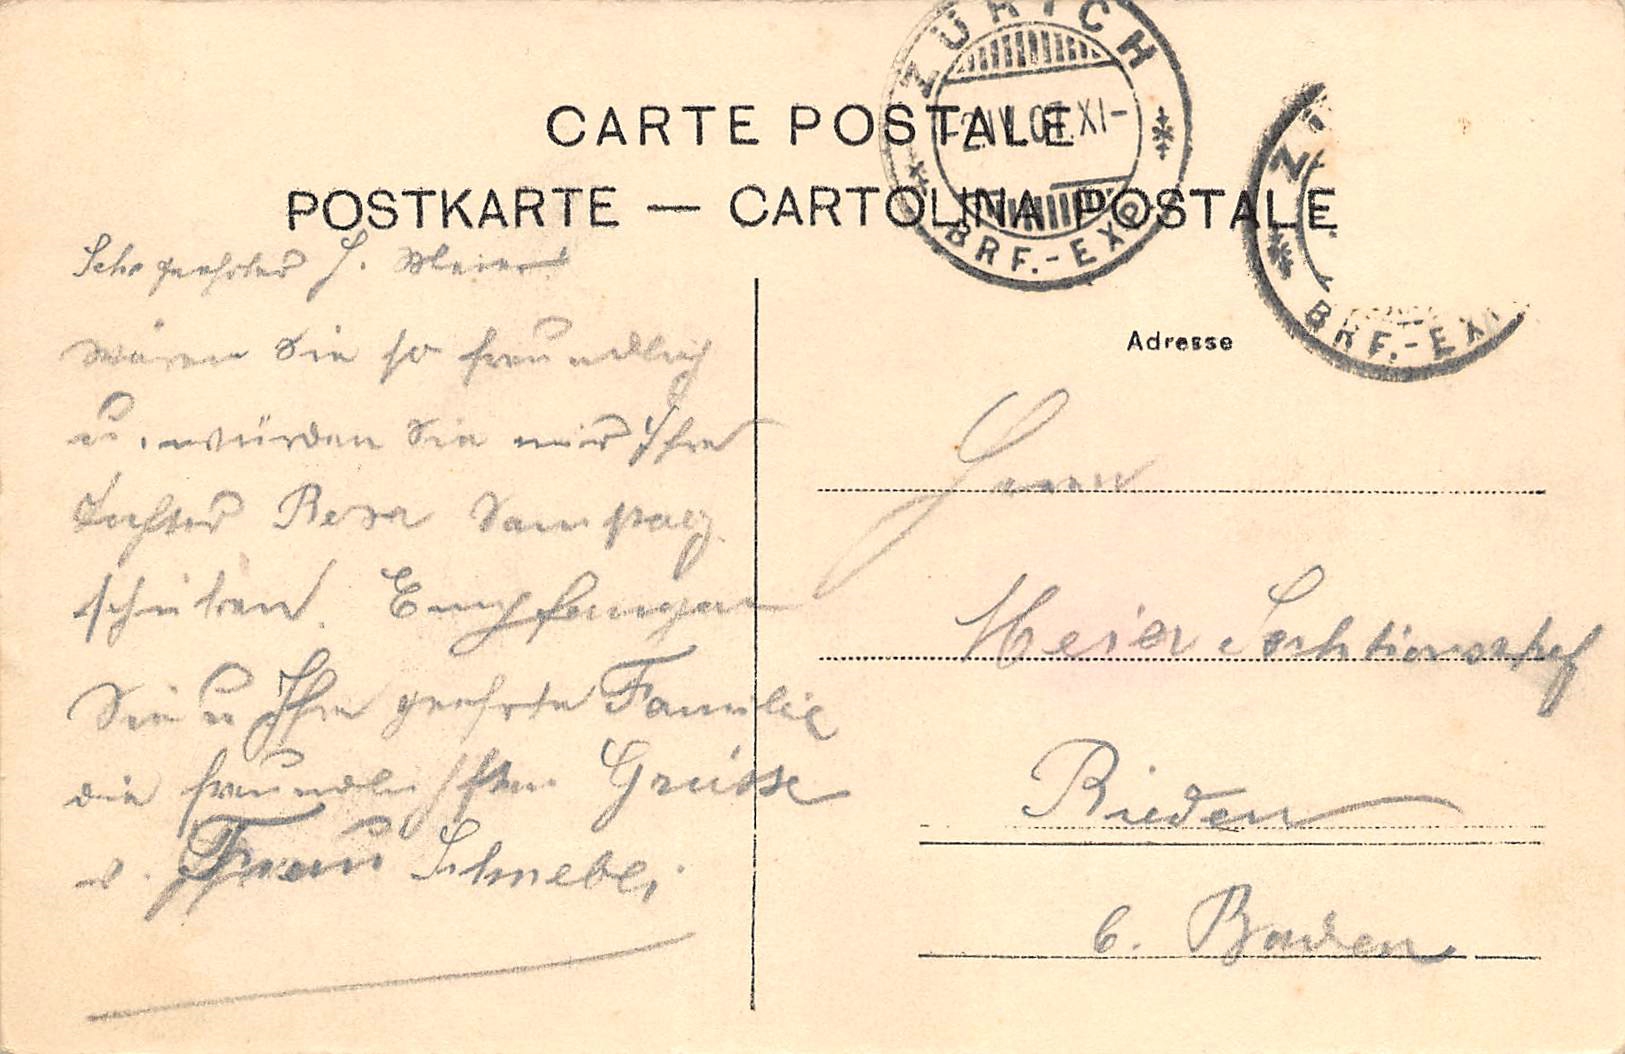 ZÜRICH
2.IV.07.XI-
BRF.-EXP.
CARTE POSTALE
POSTKARTE — CARTOLINA POSTALE
BRF.-EXP.
Adresse
Sehr geehrter H. Meier
wären Sie so freundlich
u. würden Sie mir Ihre
Tochter Rosa Samstag
schicken. Empfangen
Sie u Ihre geehrte Familie
die freundlichsten Grüsse
v. Frau Schnebli
Herrn
Meier Sektionschef
Rieden
b. Baden